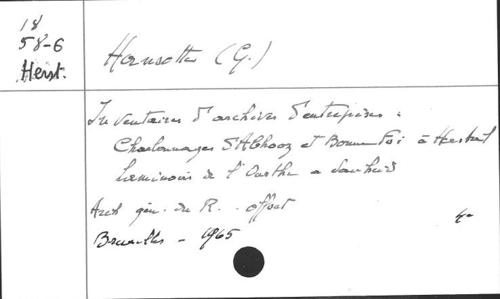 18
58-6
Herst.
Hansotte (G.)
Inventaires d'archives d'entreprises :
Charbonnages d'Abhooz et Bonne Foi à Herstal
Laminoirs de l'Ourthe à Sauheid
Arch gén. du R. . offset
Bruxelles - 1965
4°